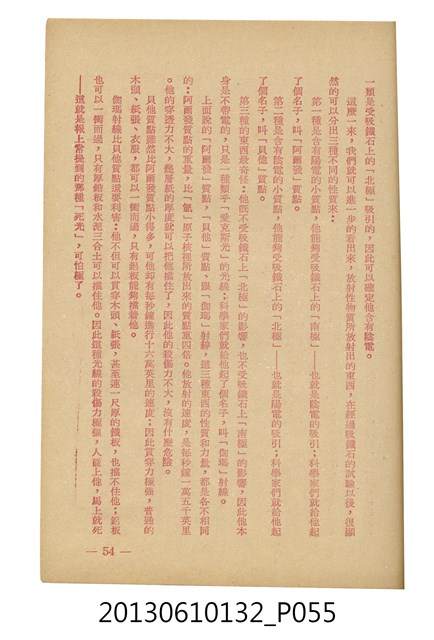 一類是受吸鐵石上的「北極」吸引的，因此可以確定他含有陰電。
這麼一來，我們就可以進一步的看出來，放射性物質所放射出的東西，在經過吸鐵石的試驗以後，很顯
然的可以分出三種不同的性質來：
第一種是含有陽電的小質點，他能夠受吸鐵石上的「南極」——也就是陰電的吸引：科學家們就給他起
了個名子，叫「阿爾發」質點。
第二種是含有陰電的小質點，他能夠受吸鐵石上的「北極」——也就是陽電的吸引；科學家們就給他起
了個名子，叫「貝他」質點。
第三種的東西最奇怪：他既不受吸鐵石上「北極」的影響，也不受吸鐵石上「南極」的影響，因此他本
身是不帶電的，只是一種類乎「愛克斯光」的光線；科學家們就給他起了個名子，叫「伽瑪」射線。
上面說的「阿爾發」質點、「貝他」質點、跟「伽瑪」射線，這三種東西的性質和力量，都是各不相同
的：阿爾發質點的重量，比「氫」原子核裡所放出來的質點重四倍。他放射的速度，是每秒鐘一萬五千英里
。他的穿透力不大，幾層紙的厚度就可以把他擋住了，因此他的殺傷力不大，沒有什麼危險。
貝他質點雖然比阿爾發質點小得多，可他却有每秒鐘進行十六萬英里的速度；因此貫穿力極強，普通的
木頭、紙張、衣服，都可以一衝而過，只有鋁板能夠擋着他。
伽瑪射線比貝他質點還要利害：他不但可以貫穿木頭、紙張，甚至連一尺厚的鐵板，也擋不住他；鋁板
也可以一衝而過，只有厚鉛板和水泥三合土可以擋住他。因此這種光線的殺傷力極強，人碰上他，馬上就死
——這就是報上常提到的那種「死光」，可怕極了。
— 54 —
20130610132_P055